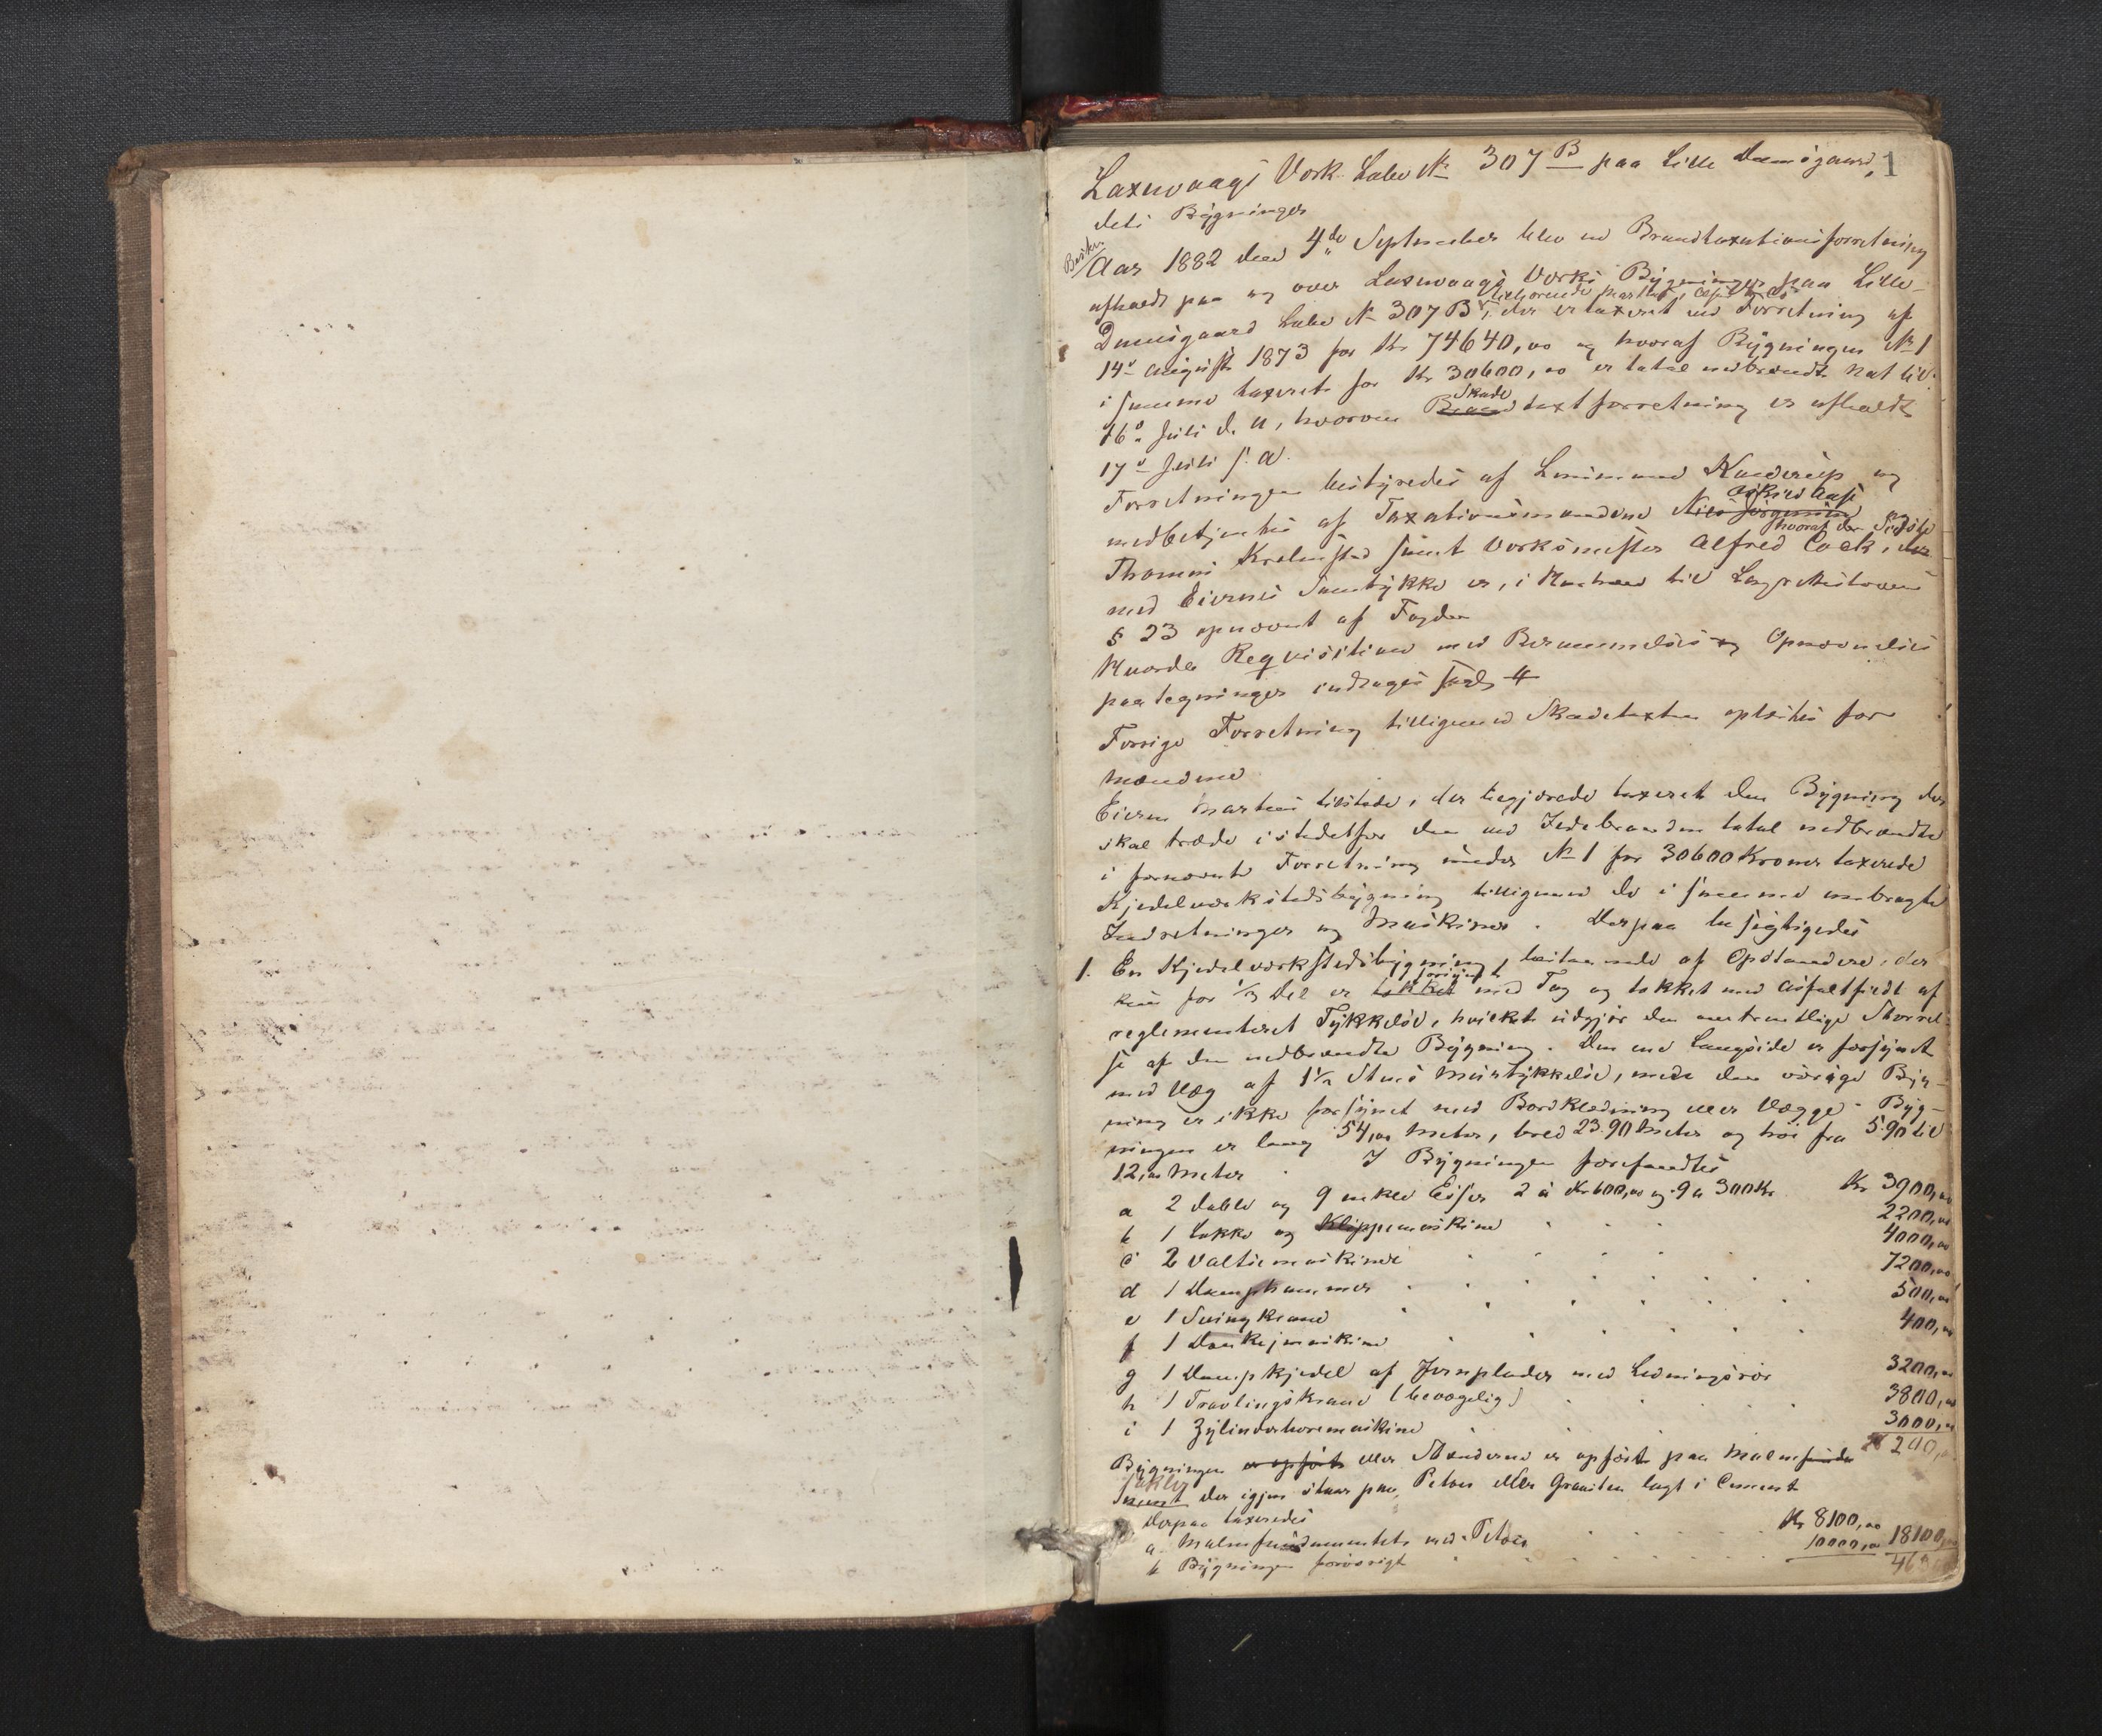 Laxevaags Værk Løbe № 307 B paa Lille Damsgaard, 1
dets Bygninger
Beskr.
Aar 1882 den 4de September blev en Brandtaxationsforretning
afholdt paa og over Laxevaags Værks Bygninger paa Lille
Damsgaard Løbe № 307 B, tilhørende der er taxeret ved Forretning af
14de August 1873 for Kr 74640,00 og hvoraf Bygningen № 1
i samme taxeret for Kr 30600,00 er total nedbrændt Nat til
16de Juli d. A, hvorom Skadetaxtforretning er afholdt
17de Juli s. A.
Forretningen bestyredes af Lensmand Knudsen og
medbetjentes af Taxationsmændene Nils Jørgensen
Thomas samt Værksmester Alfred Cock, hvoraf den Sidste
med Eiernes Samtykke er, i Henhold til
§ 23 opnævnt af Fogden
Rqvisition med Berammelses og Opnævnelses
paategninger indtages
Forrige Forretning tilligemed Skadetaxten oplæstes for
Mændene
Eieren tilstede, der begjærede taxeret den Bygning der
skal træde istedetfor den ved Ildebranden total nedbrændte
i fornævnte Forretning under № 1 for 30600 Kroner taxerede
Kjedelværkstedsbygning tilligemed de i samme anbragte
Indretninger og Maskiner. Derpaa besigtigedes
1. En Kjedelværkstedsbygning, bestaaende af Opstandere, der
kun for 1/3 Del er forsynet med Tag og tækket med Asfaltfilt af
reglementeret Tykkelse, hvilket udgjør den omtrentlige Størrel-
se af den nedbrændte Bygning. Den ene Langside er forsynet
med Væg af 1½ Stens Murtykkelse, mens den øvrige Byg-
ning er ikke forsynet med Bordklædning eller Vægge. Byg-
ningen er lang 54,00 Meter, bred 23.90 Meter og høi fra 5.90 til
12,00 Meter. I Bygningen forefandtes
a 2 doble og 9 enkle Esser 2 à Kr 600,00 og 9 a 300 Kr Kr 3900,00
b 1 Lokke og Klippemaskine 2200,00
c 2 Valsemaskiner 4000,00
d 1 Damphammer 7200,00
e 1 Svingkrane 500,00
f 1 Donkeymaskine 400,00
g 1 Dampkjedel af Jernplader med Ledningsrør 3200,00
h 1 Travlingskrane (bevægelig) 3800,00
i 1 Zylinderboremaskine 3000,00
28200,00
Bygningen er opført eller Stænderne er opført paa
der igjen staar paa Beton eller Graniten lagt i Cement
Derpaa taxeredes
a fundamentet med Kr 8100,00
b Bygningen forøvrigt 10000,00 18100,00